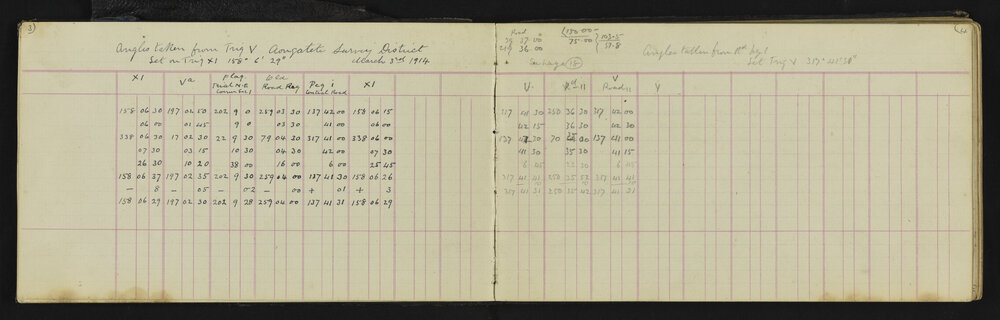 3
Angles taken from Trig V Aongatete Survey District
Set on Trig XI 158° 6' 29" March 3rd 1914
XI Va Flag Trial N.E. Corner Sec 1 Old Road Peg Peg i Control Road XI
158 06 30 197 02 50 202 9 0 259 03 30 137 42 00 158 06 15
06 00 01 45 9 0 03 30 41 00 06 00
338 06 30 17 02 30 22 9 30 79 04 30 317 41 00 338 06 00
07 30 03 15 10 30 04 30 42 00 07 30
26 30 10 20 38 00 16 00 6 00 25 45
158 06 37 197 02 35 202 9 30 259 04 00 137 41 30 158 06 26
— 8 — 05 — 02 — 00 + 01 + 3
158 06 29 197 02 30 202 9 28 259 04 00 137 41 31 158 06 29
4
Road
36 00
150-00-
75-00
103.5
57.8
See page 18
Angles taken from Rd
Set Trig V 317° 41' 30"
V Rd 11 V Road 11 V
317 41 30 250 36 30 317 42 00
42 15 36 30 42 30
137 30 70 30 137 41 00
41 30 35 30 41 15
6 45 6 45
317 41 41 250 35 52 317 41 41
317 41 31 250 35 42 317 41 31